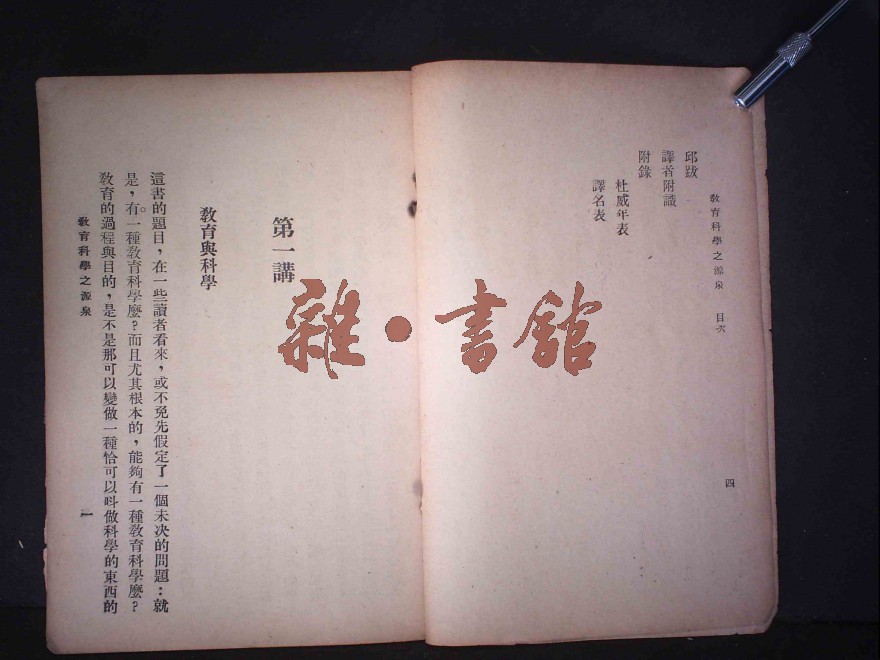 教育科學之源泉 目次
四
邱跋
譯者附識
附錄
杜威年表
譯名表
第一講
教育與科學
這書的題目，在一些讀者看來，或不免先假定了一個未决的問題：就
是，有一種教育科學麼？而且尤其根本的，能夠有一種教育科學麼？
教育的過程與目的，是不是那可以變做一種恰可以呌做科學的東西的
教育科學之源泉
一
雜·書館